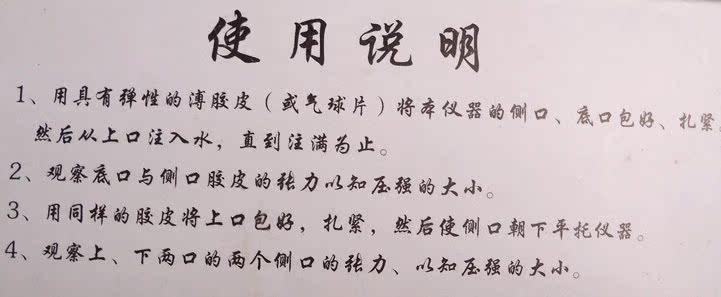 使用说明
1、用具有弹性的薄胶皮（或气球片）将本仪器的侧口、底口包好、扎紧，
然后从上口注入水，直到注满为止。
2、观察底口与侧口胶皮的张力以知压强的大小。
3、用同样的胶皮将上口包好，扎紧，然后使侧口朝下平托仪器。
4、观察上、下两口的两个侧口的张力、以知压强的大小。